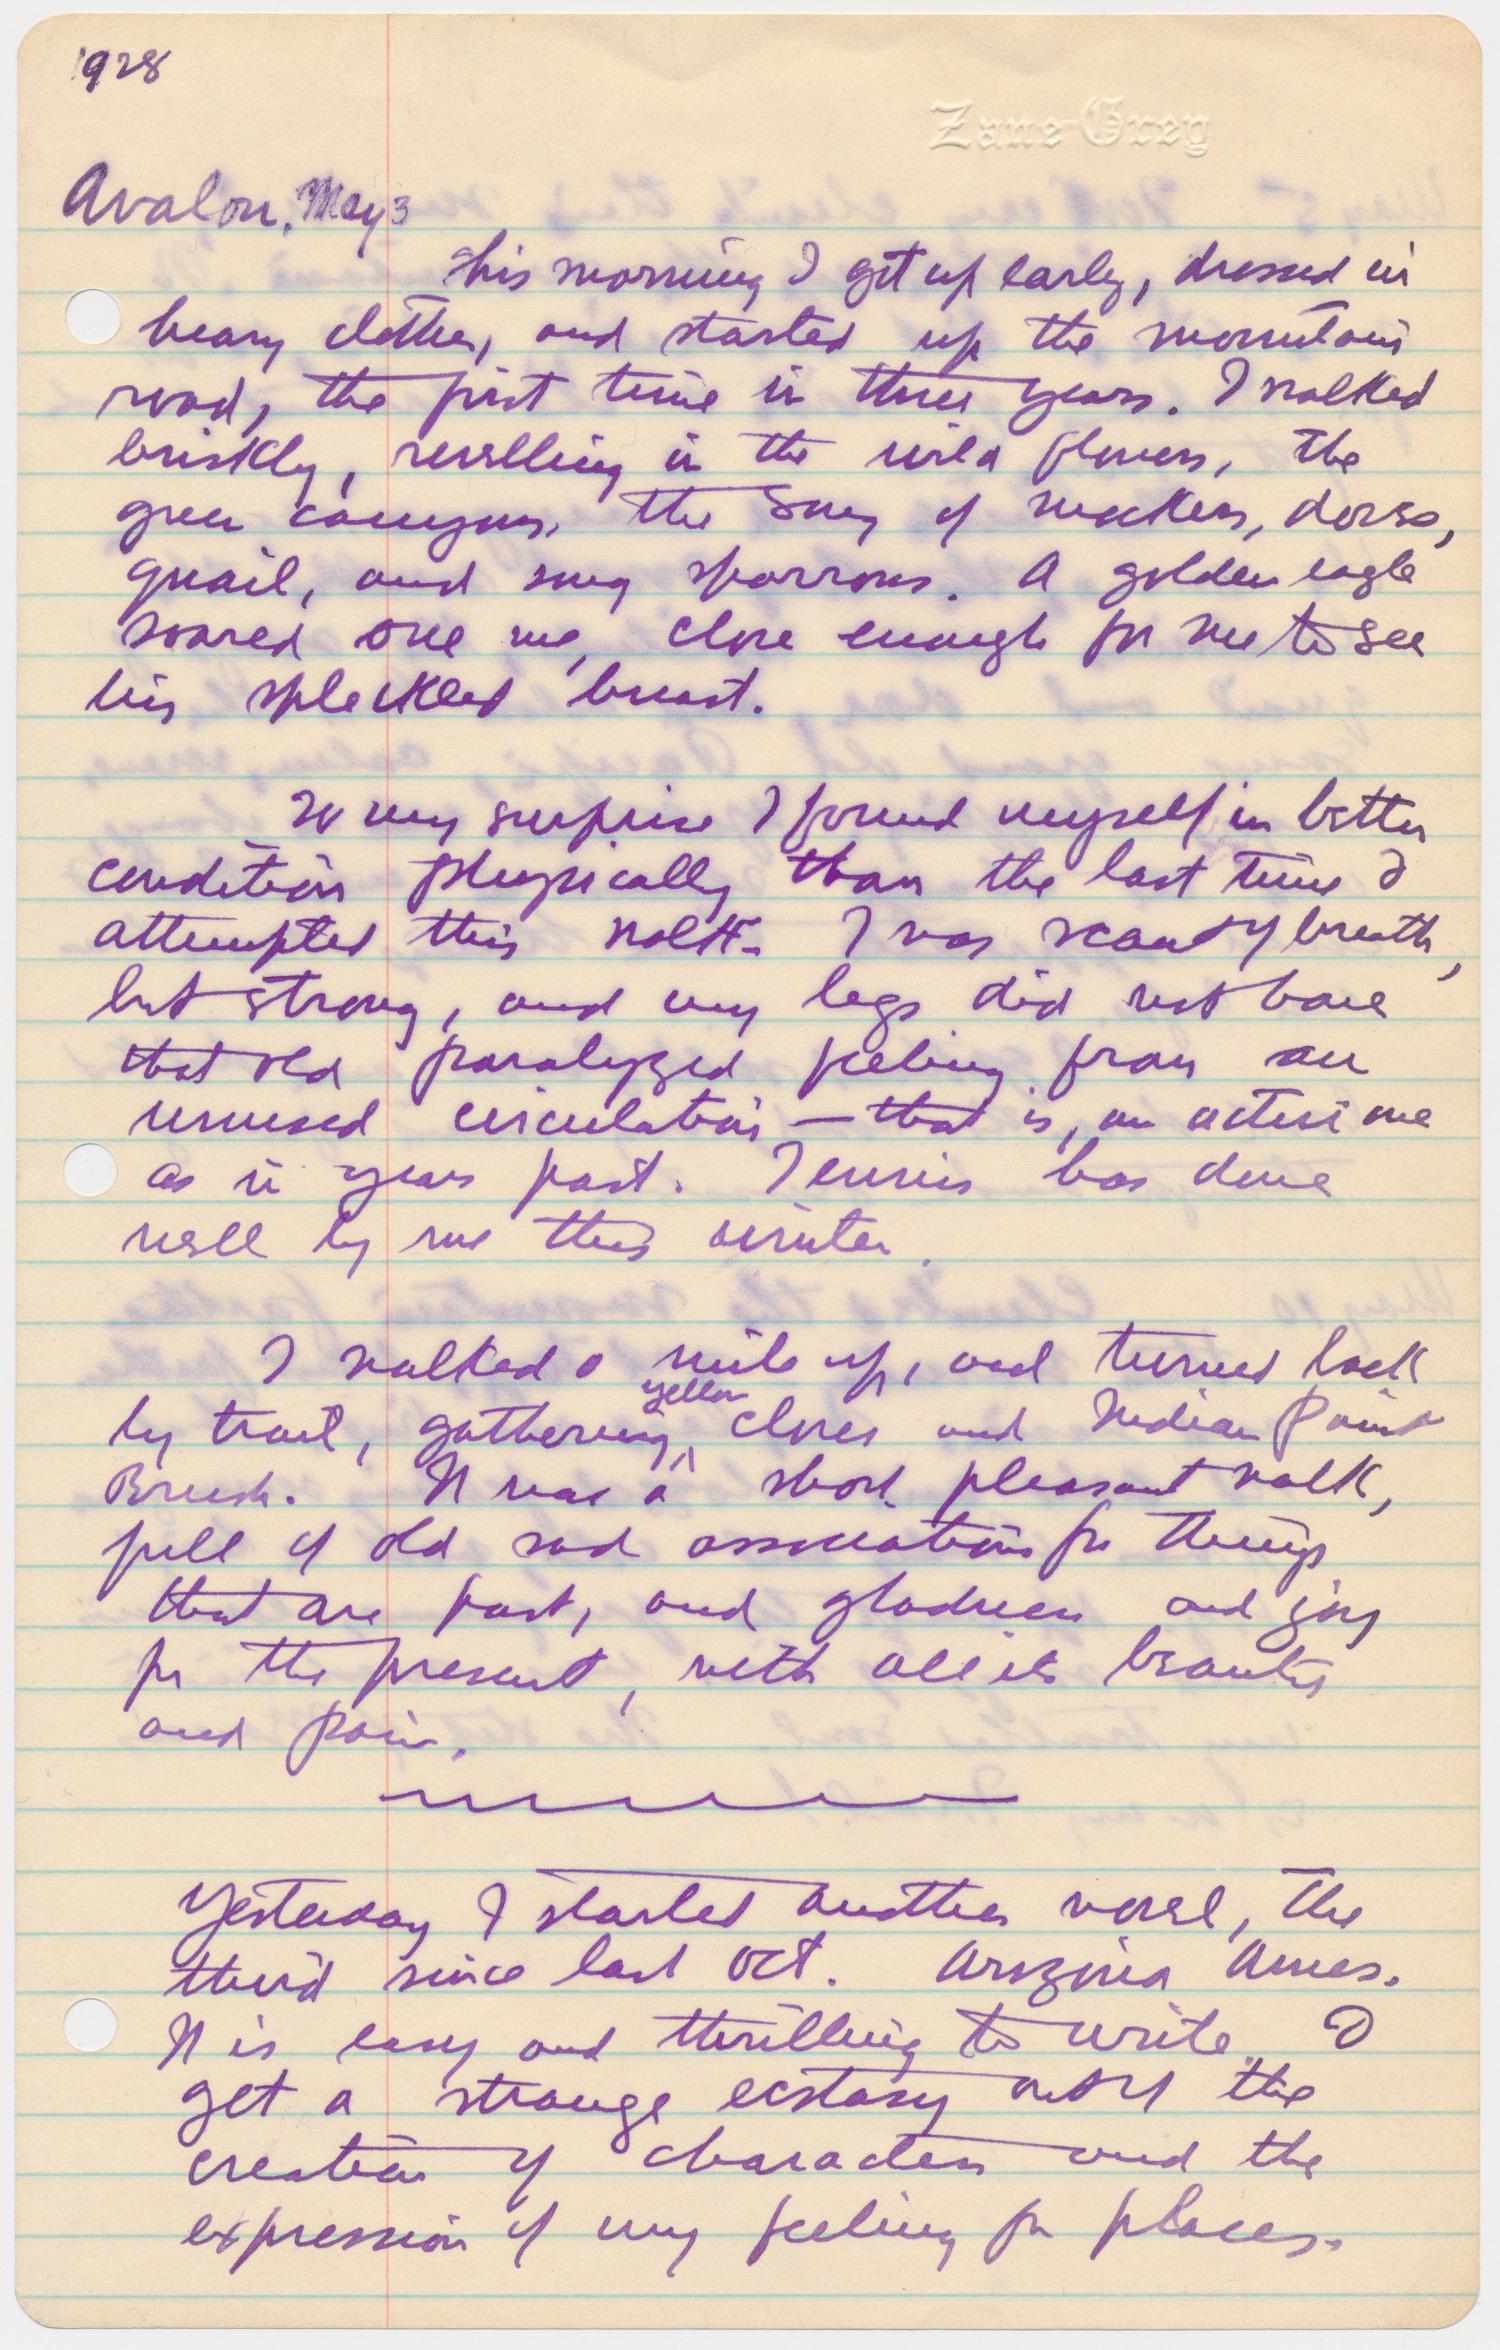 1928
Zane Grey
Avalon, May 3
This morning I got up early, dressed in
heavy clothes, and started up the mountain
road, the first time in three years. I walked
briskly, revelling in the wild flowers, the
green canyons, the song of mockers, doves,
quail, and song sparrows. A golden eagle
soared over me, close enough for me to see
his spleckled breast.
To my surprise I found myself in better
condition physically than the last time I
attempted this walk. I was scant of breath,
but strong, and my legs did not have
that old paralyzed feeling from an
unused circulation — that is, an active one
as in years past. Tennis has done
well by me this winter.
I walked a mile up, and turned back
by trail, gathering yellow clover and Indian Paint
Brush. It was a short pleasant walk,
full of old sad associations for things
that are past, and gladness and joy
for the present, with all its beauty
and pain.
Yesterday I started another novel, the
third since last Oct. Arizona Ames.
It is easy and thrilling to write. I
get a strange ecstasy out of the
creation of characters and the
expression of my feeling for places.